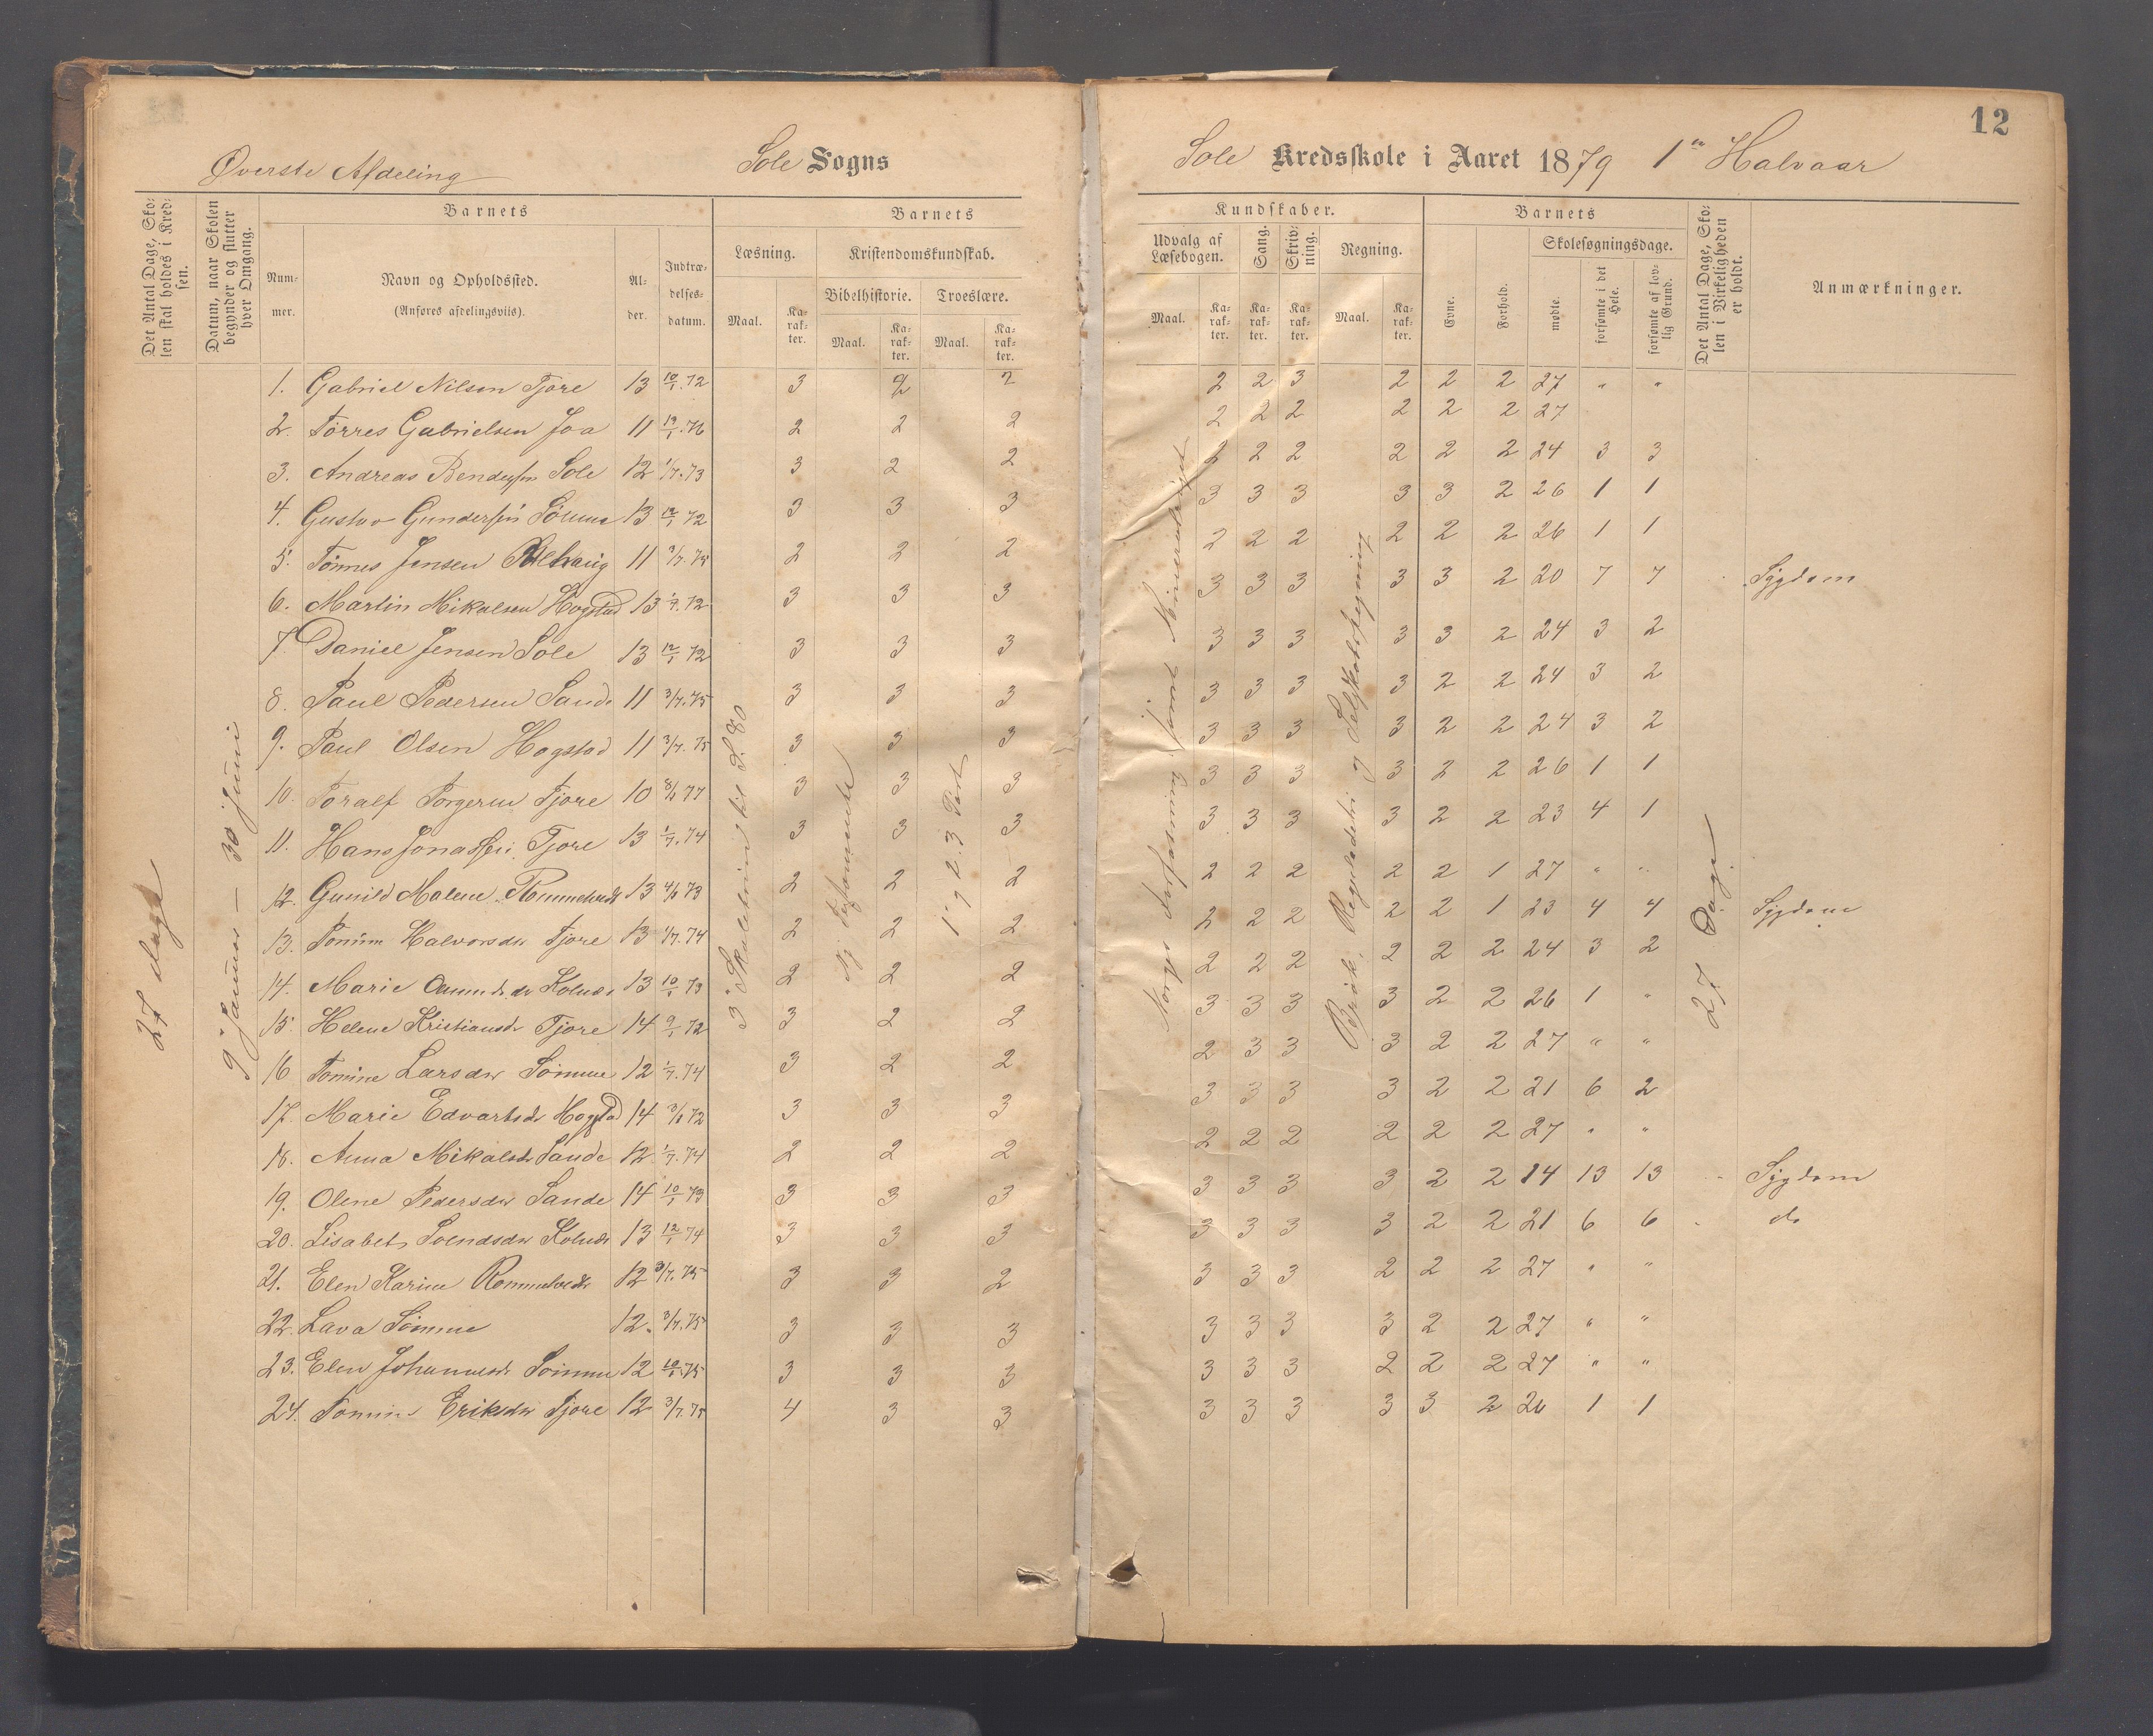 12
Øverste Afdeling Sole Sogns
Sole Kredsskole i Aaret 1879 1ste Halvaar
Det Antal Dage, Skolen skal holdes i Kredsen.
Datum, naar Skolen begynder og slutter hver Omgang.
Barnets
Nummer.
Navn og Opholdssted.
(Anføres afdelingsviis).
Alder.
Indtrædelsesdatum.
Barnets
Læsning.
Maal.
Karakter.
Kristendomskundskab.
Bibelhistorie.
Maal.
Karakter.
Troeslære.
Maal.
Karakter.
Kundskaber.
Udvalg af Læsebogen.
Maal.
Karakter.
Sang.
Karakter.
Skrivning.
Karakter.
Regning.
Maal.
Karakter.
Barnets
Evne.
Forhold.
Skolesøgningsdage.
mødte.
forsømte i det Hele.
forsømte af lovlig Grund.
Det Antal Dage, Skolen i Virkeligheden er holdt.
Anmærkninger.
27 dage
9 Januar — 30 Juni
3 Skoletrin til S. 80
1. 2. 3 Part
Norges Forfatning samt Mineralriget
Brøk, Regula detri og Selskabsregning
27 Dage
1. Gabriel Nilsen Tjore 13 10/1.72 3 2 2 2 2 3 2 2 2 27 " "
2. Tørres Gabrielsen Joa 11 19/1.76 2 2 2 2 2 2 2 2 2 27
3. Andreas Bendixsen Sole 12 1/7.73 3 2 2 2 2 2 2 2 2 24 3 3
4. Gustav Gundersen Sømme 13 12/1 72 3 3 3 3 3 3 3 3 2 26 1 1
5. Tønnes Jensen 11 3/7.75 2 2 2 2 2 2 2 2 2 26 1 1
6. Martin Mikalsen Hogstad 13 1/7.72 3 3 3 3 3 3 3 3 2 20 7 7 Sygdom
7. Daniel Jensen Sole 13 12/1 72 3 3 3 3 3 3 3 3 2 24 3 2
8. Paul Pedersen Sande 11 3/7.75 3 3 3 3 3 3 3 2 2 24 3 2
9. Paul Olsen Hogstad 11 3/7.75 3 3 3 3 3 3 3 2 2 24 3 2
10. Toralf Torgersen Tjore 10 8/1 77 3 3 3 3 3 3 3 2 2 26 1 1
11. Hans Jonassen Tjore 13 1/7.74 3 3 3 3 3 3 3 2 2 23 4 1
12. Gunild Malene Rommetvedt 13 4/1 73 2 2 2 2 2 2 2 2 1 27 " "
13. Tomine Halvorsdtr Tjore 13 1/7.74 2 2 2 2 2 2 2 2 1 23 4 4 Sygdom
14. Marie 13 10/1 73 2 2 2 2 2 2 2 2 2 24 3 2
15. Helene Kristiansdr Tjore 14 9/1 72 3 2 2 3 3 3 3 2 2 26 1 "
16 Tomine Larsdtr Sømme 12 1/7.74 3 2 2 2 3 3 3 2 2 27 " "
17. Marie Edvartsdr Hogstad 14 3/1 72 3 3 3 3 3 3 3 2 2 21 6 2
18. Anna Mikalsdr Sande 12 1/7.74 2 2 2 2 2 2 2 2 2 27 " "
19. Olene Pedersdtr Sande 14 10/1 73 3 3 3 3 3 3 3 2 2 14 13 13 Sygdom
20. Lisabet Svendsdtr 13 12/1 74 3 3 3 3 3 3 3 2 2 21 6 6 do
21. Elen Karine Rommetvedt 12 3/7.75 3 3 2 3 3 3 2 2 2 27 " "
22. Lava Sømme 12. 3/7.75 3 3 3 3 3 3 3 2 2 27 " "
23. Elen Johannesdr Sømme 12 10/1.75 3 3 3 3 3 3 2 2 2 27 " "
24. Tomine Eriksdtr Tjore 12 3/7.75 4 3 3 3 3 3 3 3 2 26 1 1